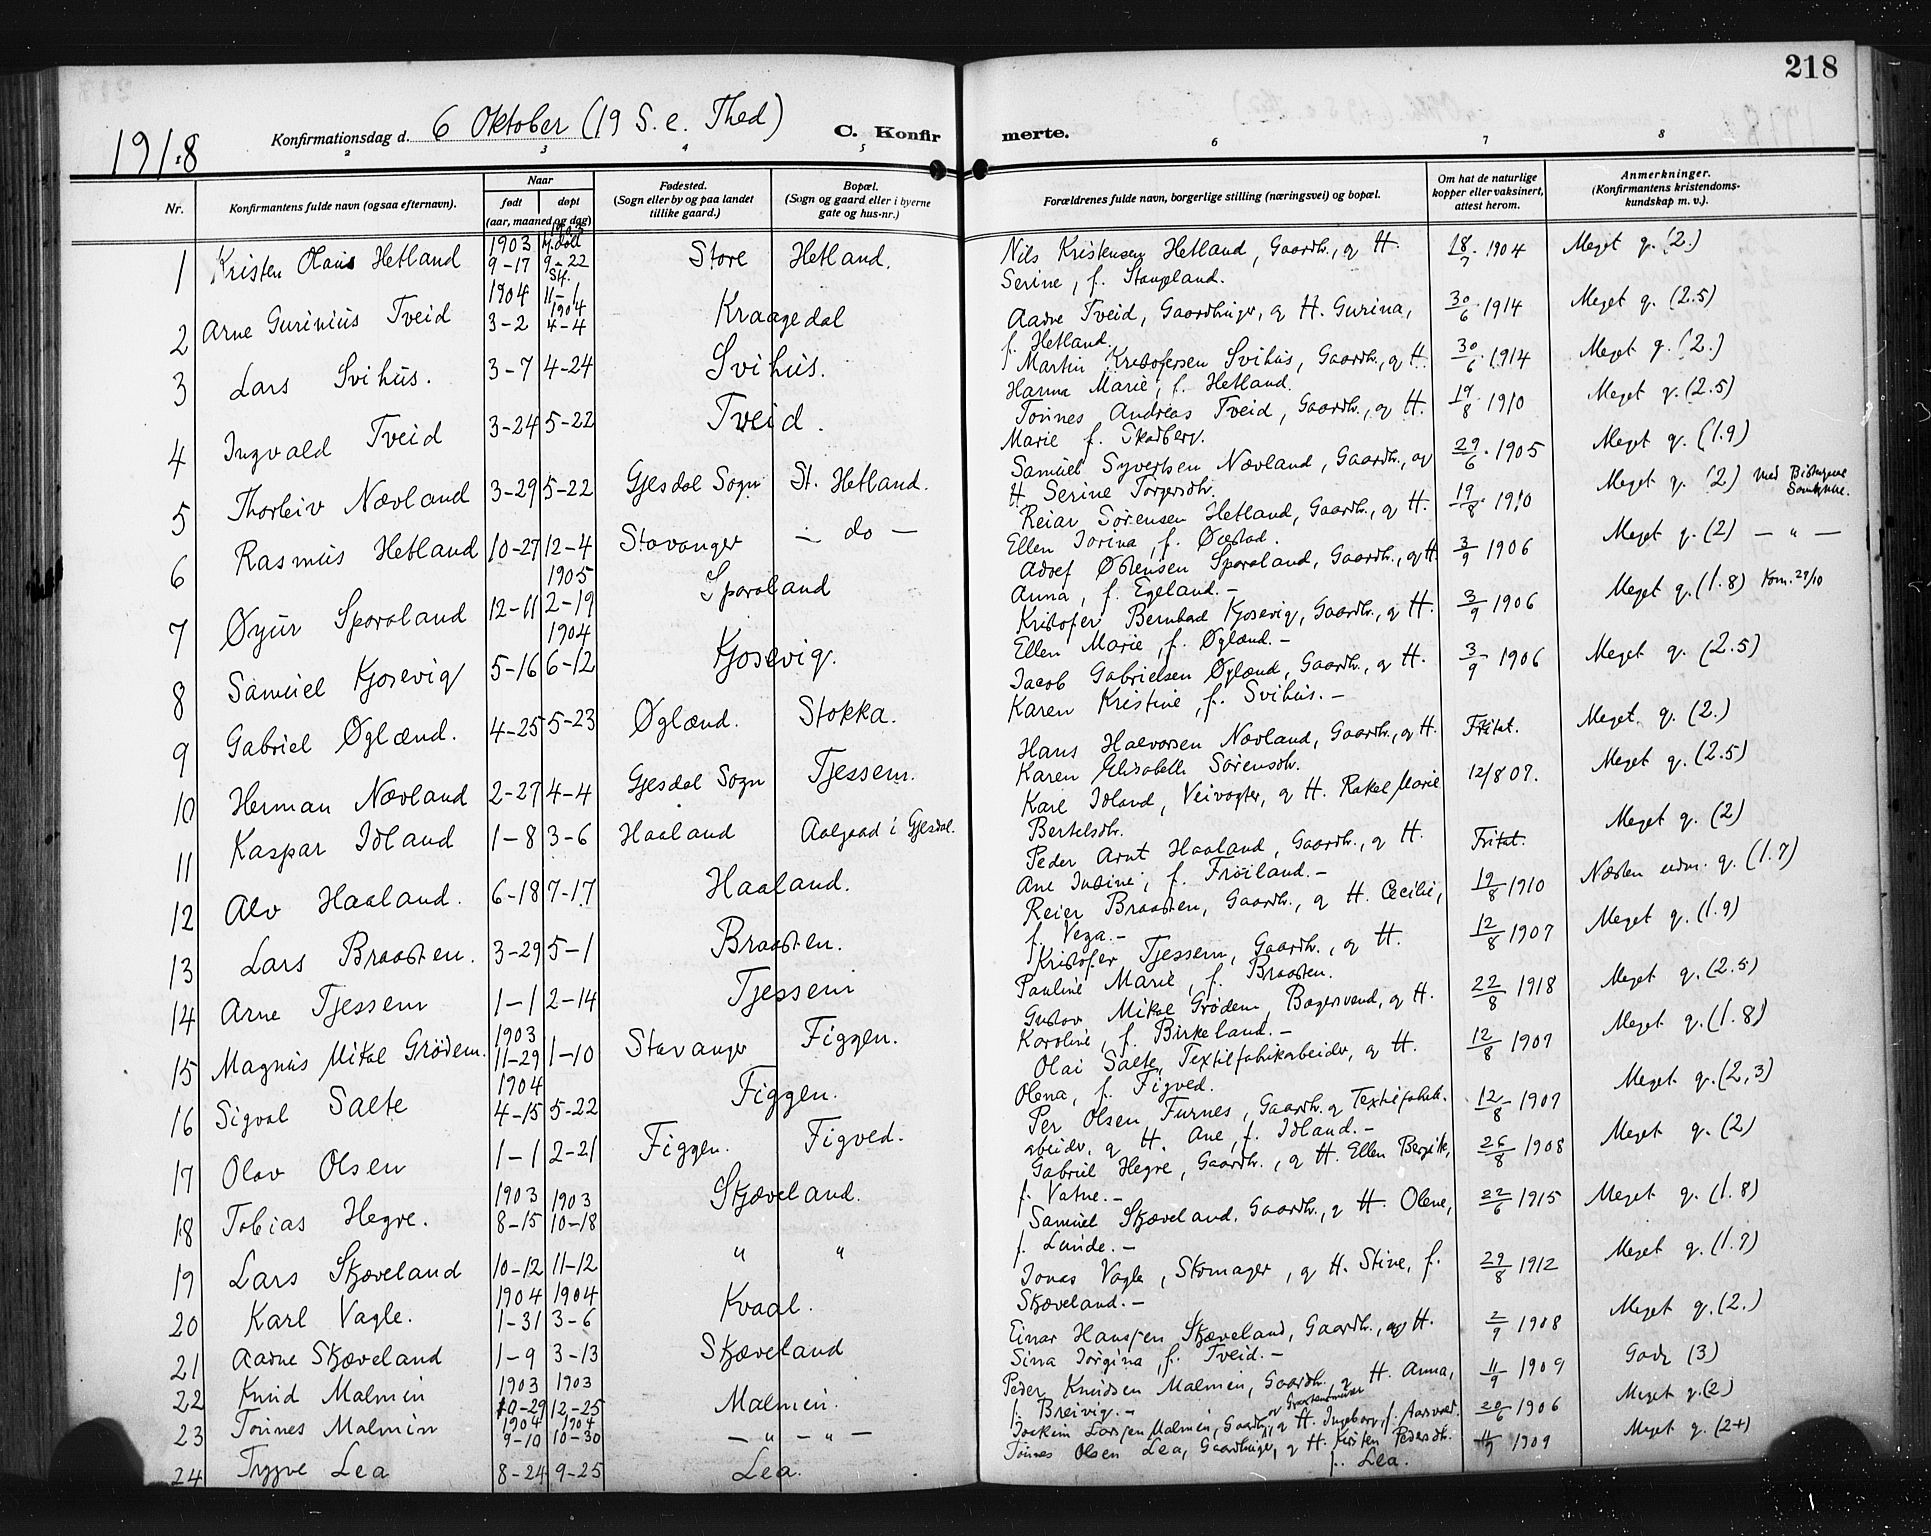 218
1918
Konfirmationsdag d. 6 Oktober (19 S. e. Thed)
C. Konfirmerte.
2 3 4 5 6 7 8
Nr.
Konfirmantens fulde navn (ogsaa efternavn).
Naar
født døpt
(aar, maaned og dag)
Fødested.
(Sogn eller by og paa landet
tillike gaard.)
Bopæl.
(Sogn og gaard eller i byerne
gate og hus-nr.)
Forældrenes fulde navn, borgerlige stilling (næringsvei) og bopæl.
Om hat de naturlige
kopper eller vaksinert,
attest herom.
Anmerkninger.
(Konfirmantens kristendoms-
kundskap m. v.).
1 Kristen Olaus Hetland 1903 9-17 9-22 11-1 Store Hetland. Nils Kristensen Hetland, Gaardbr., og H. 18/7 1904 Meget g. (2.)
Serine, f. Stangeland.
2 Arne Gurinius Tveid 1904 3-2 1904 4-4 Kraagedal Aadne Tveid, Gaardbruger, og H. Gurina, 30/6 1914 Meget g. (2.5)
f. Hetland.
3 Lars Svihus. 3-7 4-24 Svihus. Martin Kristofersen Svihus, Gaardbr., og H. 30/6 1914 Meget g. (2.)
Hanna Marie, f. Hetland.
4 Ingvald Tveid 3-24 5-22 Tveid. Tønnes Andreas Tveid, Gaardbr., og H. 19/8 1910 Meget g. (2.5)
Marie f. Skadberg.
5 Thorleiv Nævland 3-29 5-22 Gjesdal Sogn St. Hetland. Samuel Syvertsen Nævland, Gaardbr., og 29/6 1905 Meget g. (1.9)
H. Serine Torgersdtr.
6 Rasmus Hetland 10-27 12-4 Stavanger — do — Reiar Sørensen Hetland, Gaardbr., og H. 19/8 1910 Meget g. (2) med Biskopens Samtykke.
Ellen Jorina, f.
7 Øyur Sporaland 12-11 1905 2-19 Sporaland Adsef Østensen Sporaland, Gaardbr., og H. 3/9 1906 Meget g. (2) — " —
Anna, f. Egeland. —
8 Samuel Kjosevig 5-16 1904 6-12 Kjosevig. Kristofer Bernhad Kjosevig, Gaardbr., og H. 3/9 1906 Meget g. (1.8) Kom. 27/10
Ellen Marie, f. Øglænd. —
9 Gabriel Øglænd. 4-25 5-23 Øglænd. Stokka. Jacob Gabrielsen Øglænd, Gaardbr., og H. 3/9 1906 Meget g. (2.5)
Karen Kristine, f. Svihus. —
10 Herman Nævland 2-27 4-4 Gjesdal Sogn Tjessem. Hans Halvorsen Nævland, Gaardbr., og H. Fritat. Meget. g. (2.)
Karen Elisabeth Sørensdtr.
11 Kaspar Idland 1-8 3-6 Haaland Aalgaad i Gjesdal. Karl Idland, Veivogter, og H. Rakel Marie 12/8 07. Meget g. (2.5)
Bertelsdtr.
12 Alv Haaland. 6-18 7-17 Haaland. Peder Arnt Haaland, Gaardbr., og H. Fritat. Meget g. (2)
Ane, f. Frøiland. —
13 Lars Braasten. 3-29 5-1 Braasten. Reier Braasten, Gaardbr., og H. Cecilie, 19/8 1910 Næsten udm. g. (1.7)
f. Vega. —
14 Arne Tjessem 1-1 2-14 Tjessem Kristofer Tjessem, Gaardbr., og H. 12/8 1907 Meget g. (1.9)
Pauline Marie, f. Braasten.
15 Magnus Mikal Grødem. 1903 11-29 1-10 Stavanger Figgen. Gustav Mikal Grødem, Bagersvend, og H. 22/8 1918 Meget g. (2.5)
Karoline, f. Birkeland. —
16 Sigval Saete 1904 4-15 5-22 Figgen. Olai Saete, Textilfabrikarbeider, og H. 12/8 1907 Meget g. (1.8)
Olena, f. Figved.
17 Olav Olsen 1-1 2-21 Figgen. Figved. Per Olsen Furnes, Gaardbr. og Textilfabrik- 12/8 1907 Meget g. (2,3)
arbeider, og H. Ane, f. Idland. —
18 Tobias Hegre. 1903 8-15 1903 10-18 Skjæveland. Gabriel Hegre, Gaardbr., og H. Ellen Bergitte, 26/8 1908 Meget g. (2)
f. Vatne. —
19 Lars Skjæveland 10-12 11-12 " " Samuel Skjæveland, Gaardbr., og H. Olene, 22/6 1915 Meget g. (1.8)
f. Lunde. —
20 Karl Vagle. 1904 1-31 1904 3-6 Kvaal. Jonas Vagle, Skomager, og H. Stine, f. 29/8 1912 Meget g. (1.7)
Skjæveland. —
21 Aadne Skjæveland 1-9 3-13 Skjæveland Einar Hanssen Skjæveland, Gaardbr., og H. 2/9 1908 Meget g. (2.)
Sina Jorgina, f. Tveid. —
22 Knud Malmin 1903 10-29 1903 12-25 Malmin. Peder Knudsen Malmin, Gaardbr., og H. Anna, 11/9 1909 Godt (3)
f. Breivig. —
23 Tønnes Malmin 1904 9-10 1904 10-30 — " — " — Joakim Larsen Malmin, Gaardbr., og H. Ingeborg, f. Aarsvad. 20/6 1906 Meget g. (2)
24 Trygve Lea 8-24 9-25 Lea. Tønnes Olsen Lea, Gaardbruger, og H. Kirsten Pedersdtr. 11/9 1909 Meget g. (2+)
f. Lea.